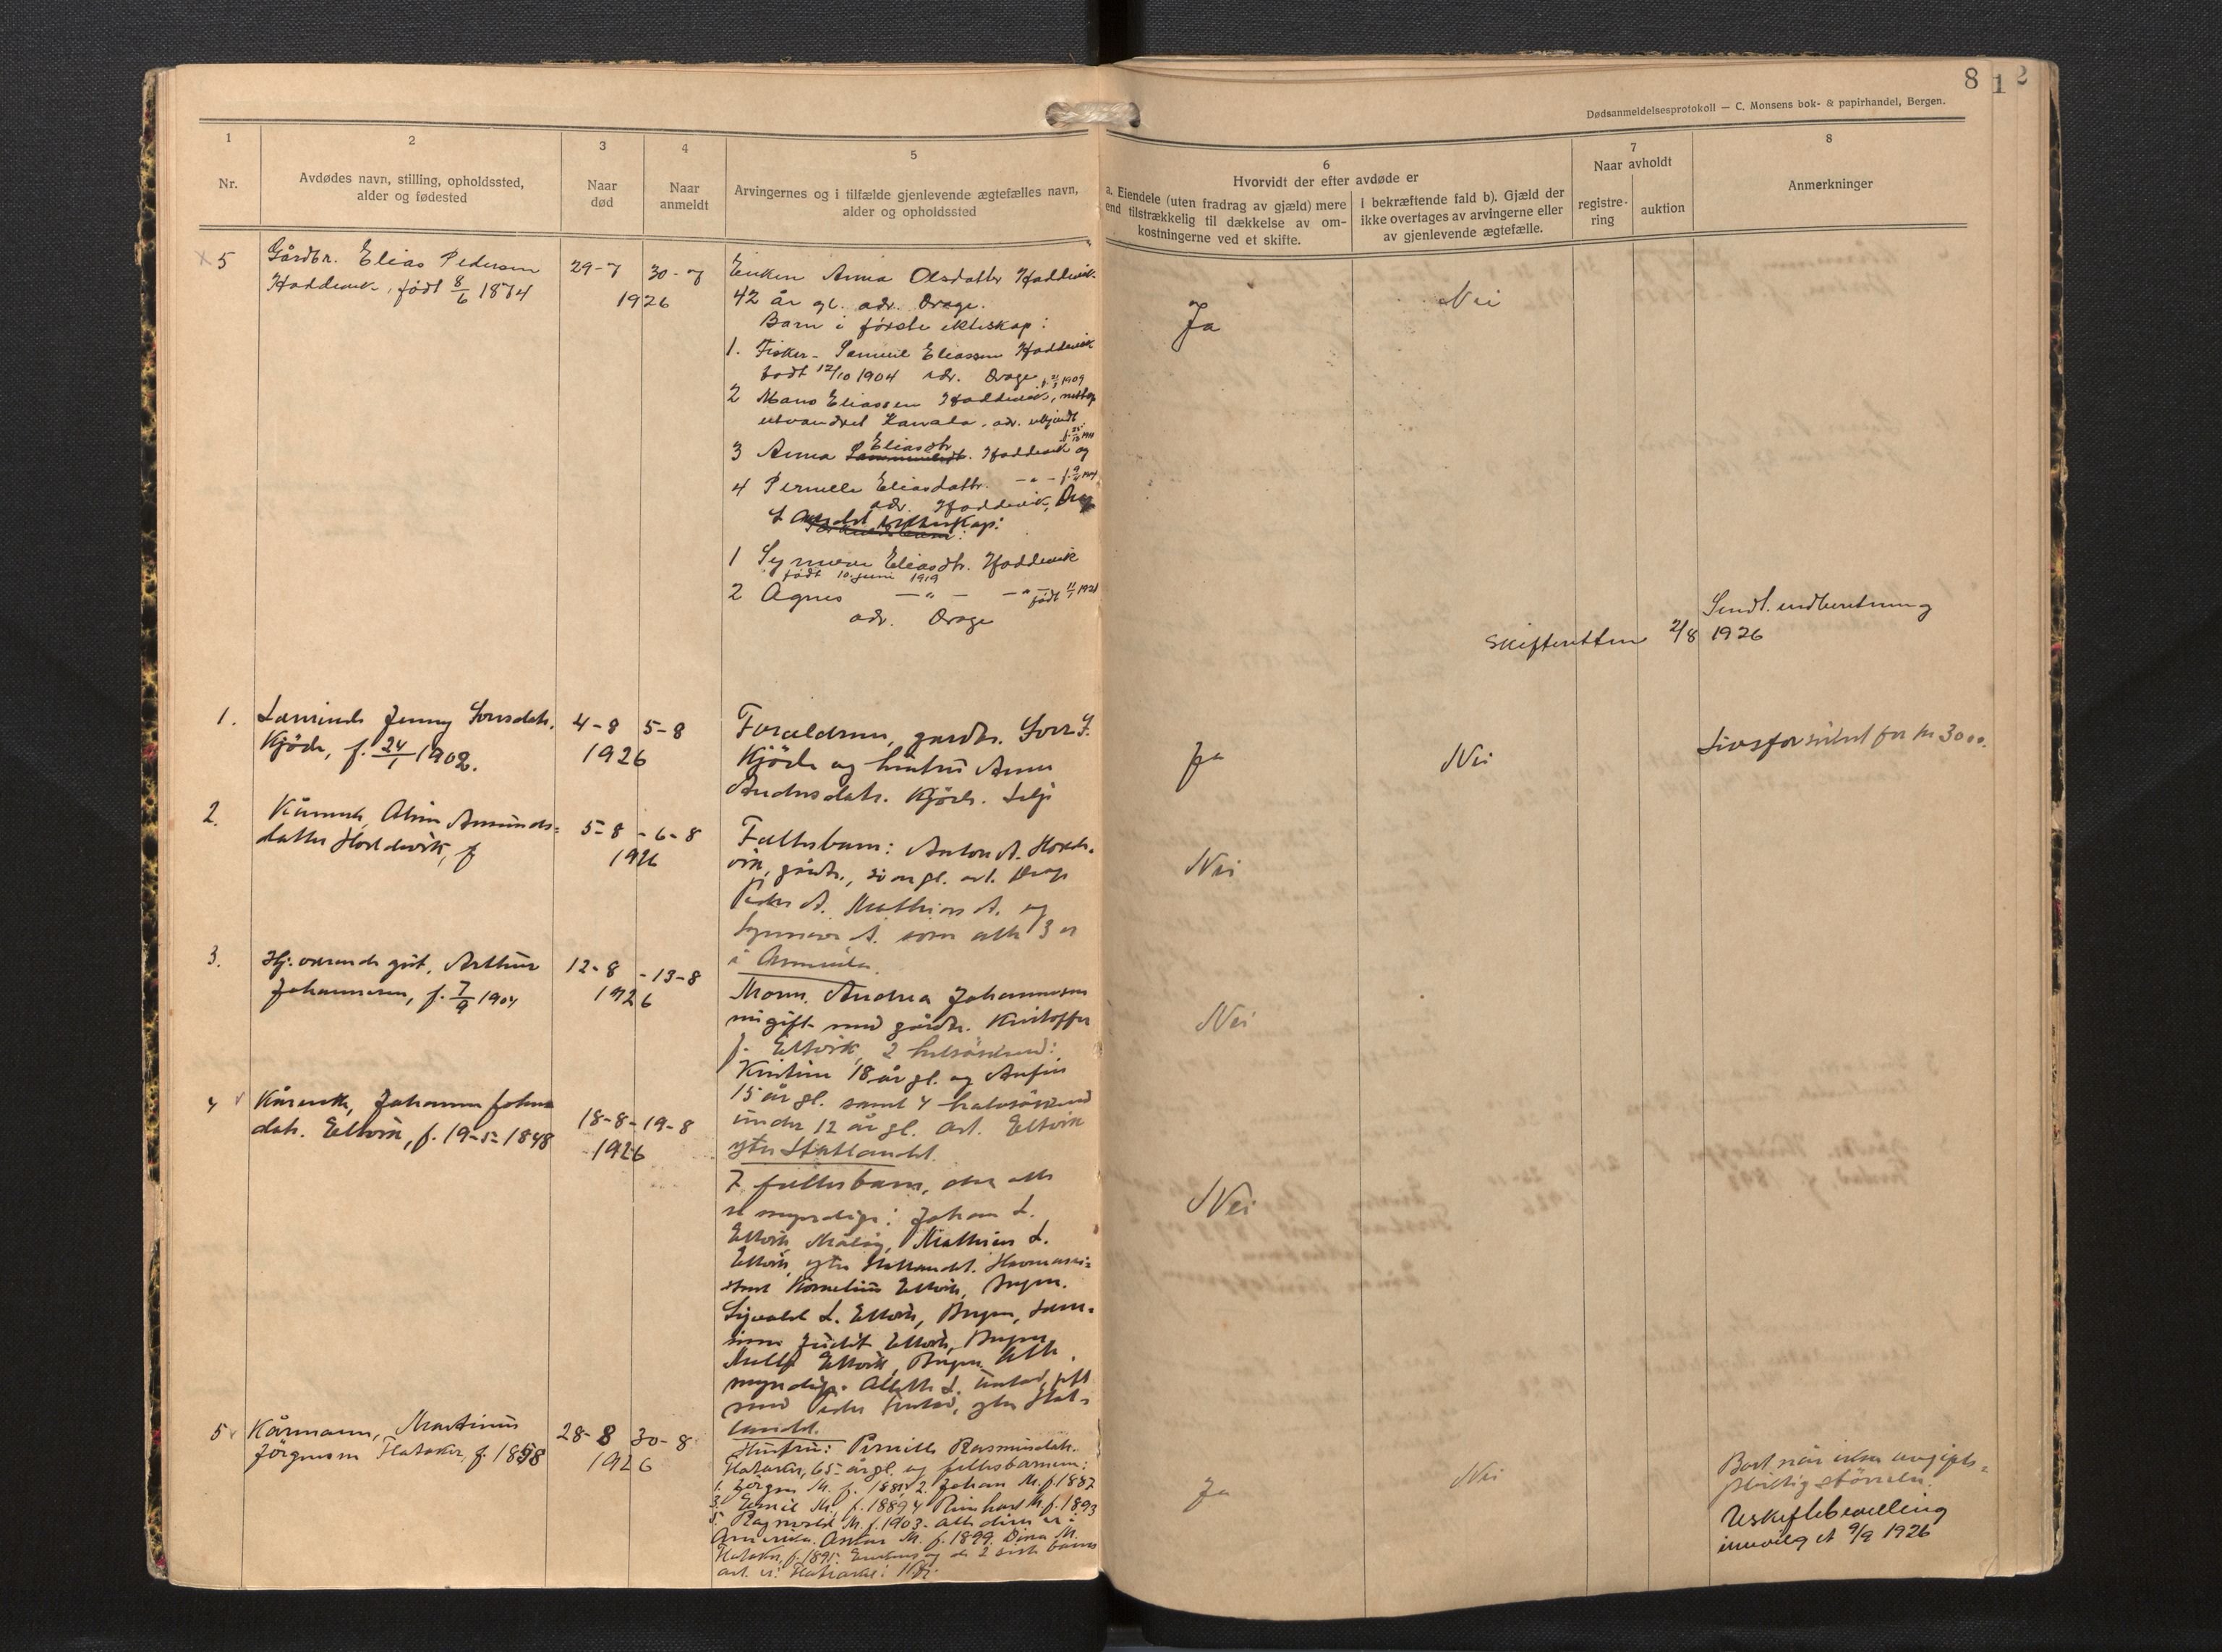 8 1 2
Dødsanmeldelsesprotokoll — C. Monsens bok- & papirhandel, Bergen.
1
Nr.
2
Avdødes navn, stilling, opholdssted,
alder og fødested
3
Naar
død
4
Naar
anmeldt
5
Arvingernes og i tilfælde gjenlevende ægtefælles navn,
alder og opholdssted
6
Hvorvidt der efter avdøde er
a. Eiendele (uten fradrag av gjæld) mere
end tilstrækkelig til dækkelse av om-
kostningerne ved et skifte.
I bekræftende fald b). Gjæld der
ikke overtages av arvingerne eller
av gjenlevende ægtefælle.
7
Naar avholdt
registre-
ring
auktion
8
Anmerkninger
5
Gårdbr. Elias Pedersen
Hoddevik, født 8/6 1874
29-7 30-7
1926
Enken Anna Olsdatter Hoddevik
42 år gl. adr. Drage.
Barn i første ekteskap:
1. Fisker - Samuel Eliassen Hoddevik
født 12/10 1904 adr. Drage
2 Mons Eliassen Hoddevik,
utvandret Kanada, adr. ukjendt
3 Anna Eliasdtr. Hoddevik og
4 Pernelle Eliasdattr. — " —
adr. Hoddevik, Drage
I andet ekteskap:
1 Synneve Eliasdtr. Hoddevik
født 10. juni 1919
2 Agnes — " — — " — født 1921
adr. Drage
Ja
Nei
Sendt indberetning
Skifteretten 2/8 1926
1.
Jenny
Kjøde, f. 24/1 1902.
4-8 5-8
1926
Forældrene, gardbr.
Kjöde og hustru Anna
Andersdatr. Kjöde. Selje
Ja
Nei
Livsforsikret for kr 3000.
2.
Kårenke, Amunds-
datter Hoddevik, f
5-8 - 6-8
1926
Fællesbarn: Anton A. Hodde-
vik, gårdbr., år gl. ad. Drage
Peder A. Mathias A. og
Synneve A. som alle 3 er
i Amerika.
Nei
3.
Hj. værende gut, Arthur
Johannesen, f. 7/9 1904
12-8 - 13-8
1926
Moren Andrea Johannesen
nu gift med gårdbr. Kristoffer
J. Eltvik, 2 helsöskend:
Kristine 18 år gl. og Anfin
15 år gl. samt 4 halvsöskend
under 12 år gl. ad. Eltvik
ytre Statlandet.
Nei
4
Kårenke, Johanne Johns
datr. Eltvik, f. 19-5-1848
18-8- 19-8
1926
7 fællesbarn, der alle
er myndige: Johan L.
Eltvik Måløy, Mathias L.
Eltvik, ytre Statlandet.
Kornelius Eltvik, Bergen.
Sigvald L. Eltvik, Bergen,
Judit Eltvik, Bergen
Eltvik, Bergen. Alle
myndige. L. gift
med Peder ytre Stat-
landet.
Nei
5
Kårmann, Martinus
Jörgensen Hataker, f. 1858
28-8 30-8
1926
Hustru: Pernille Rasmusdatr.
Hataker, 65 år gl. og fellesbarnene:
1. Jörgen M. f. 2. Johan M. f. 1887
3. Emil M. f. 1889 4 M. f. 1893
5. Ragnvald M. f. 1903. alle disse er i
Amerika. M. f. 1899. Dina M.
Hataker, f. 1895. Enken og de 2 siste barns
ad. er:
Ja
Nei
Bort når avgifts-
pliktig størrelse.
Uskiftebevilling
innvilget 9/9 1926